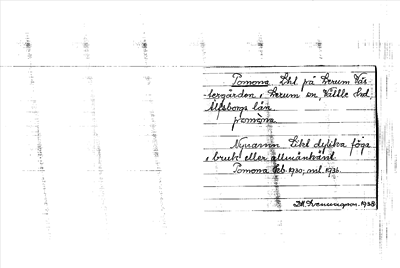 Pomona. Lht på Lerum Väs-
tergården, Lerum sn, Vättle hd,
Älfsborgs län.
pomòna
Nynamn. Likt dylika föga
i bruk eller allmänkänt.
Pomona Jb. 1930; ml. 1936.
1938